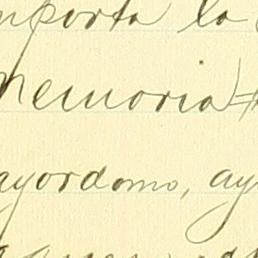 mporta la
memoria
ayordomo, ay